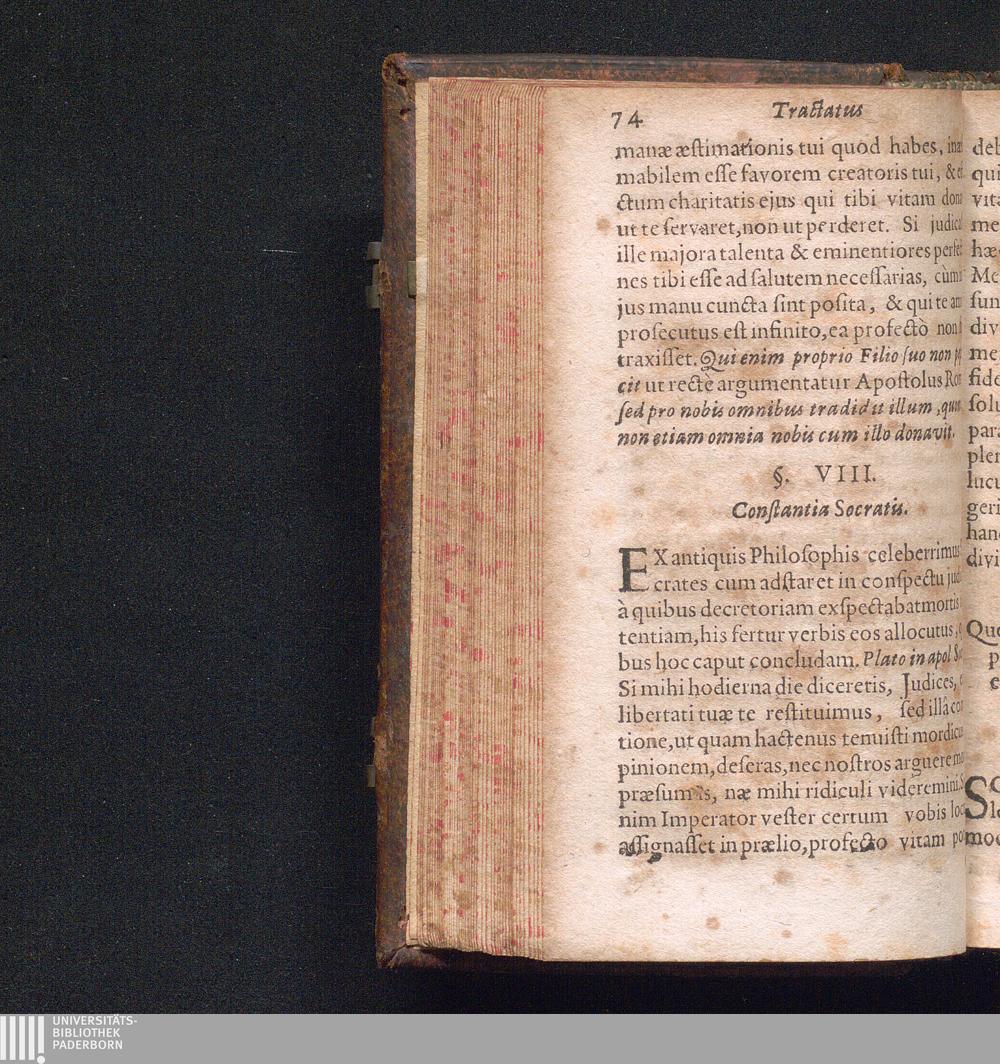 74 Tractatus
manæ æſtimationis tui quod habes, ina
mabilem eſſe favorem creatoris tui, & ef
ctum charitatis ejus qui tibi vitam don
ut te ſervaret, non ut perderet. Si judic
ille majora talenta & eminentiores perfe
nes tibi eſſe ad ſalutem neceſſarias, cùm
jus manu cuncta ſint poſita, & qui te am
proſecutus eſt infinito, ea profectò non
traxiſſet. Qui enim proprio Filio ſuo non
cit ut rectè argumentatur Apoſtolus Rom
ſed pro nobis omnibus tradidit illum, quom
non etiam omnia nobis cum illo donavit.
§. VIII.
Conſtantia Socratis.
EX antiquis Philoſophis celeberrimus
crates cum adſtaret in conſpectu jud
à quibus decretoriam exſpectabat mortis
tentiam, his fertur verbis eos allocutus,
bus hoc caput concludam. Plato in apol So
Si mihi hodierna die diceretis, Judices,
libertati tuæ te reſtituimus, ſed illâ con
tione, ut quam hactenus tenuiſti mordicus
pinionem, deſeras, nec noſtros arguere mo
præſumas, næ mihi ridiculi videremini. S
nim Imperator veſter certum vobis loc
aſſignaſſet in prælio, profecto vitam po
deb
qui
vita
me
hæc
Me
ſun
div
me
fide
ſolu
para
plen
lucu
geri
hand
divi
Quo
p
e
So
le
mod
UNIVERSITÄTS-
BIBLIOTHEK
PADERBORN